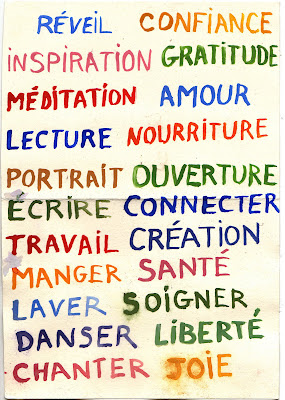 RÉVEiL CONFIANCE
iNSPIRATION GRATITUDE
MÉDITATION AMOUR
LECTURE NOURRITURE
PORTRAIT OUVERTURE
ÉCRIRE CONNECTER
TRAVAIL CRÉATION
MANGER SANTÉ
LAVER SOIGNER
DANSER LiBERTÉ
CHANTER JOIE